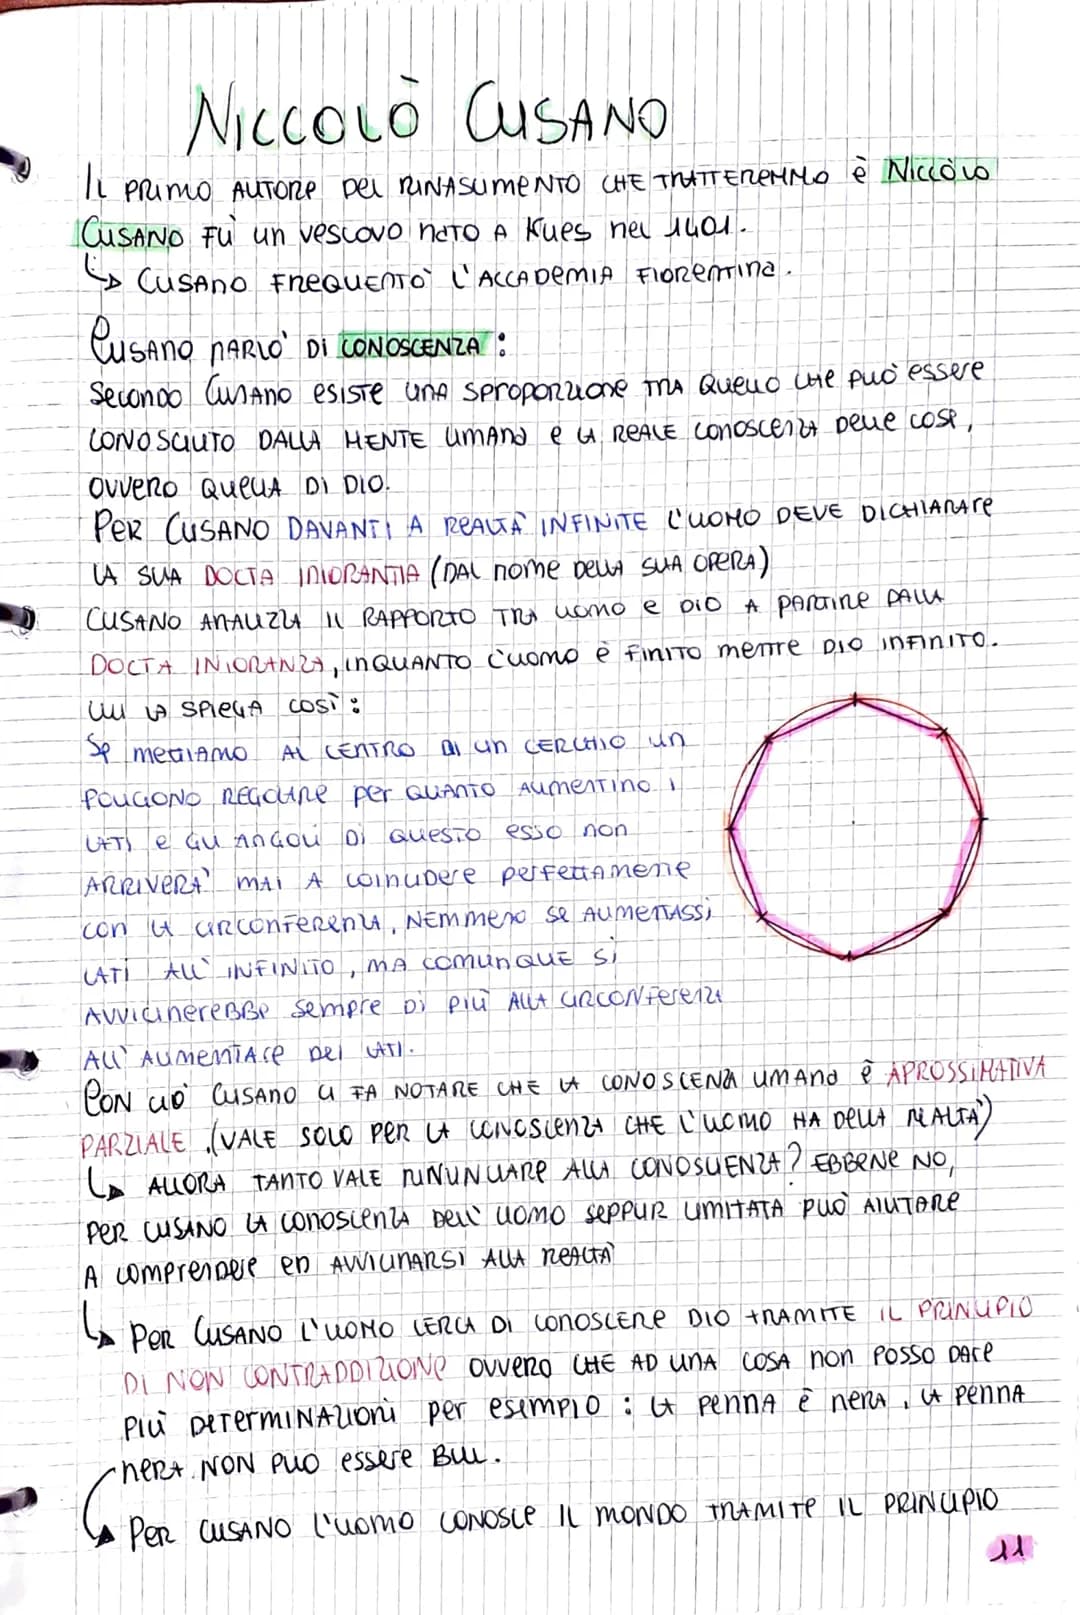 NICCOLÒ CUSANO
IL PRIMO AUTORE DEL RINASCIMENTO CHE TRATTEREMMO È NICCÒLO
CUSANO FÙ UN VESCOVO NATO A KUES NEL 1401.
↳ CUSANO FREQUENTÒ L'ACCADEMIA FIORENTINA.
CUSANO PARLÒ DI CONOSCENZA:
SECONDO CUSANO ESISTE UNA SPROPORZIONE TRA QUELLO CHE PUÒ ESSERE
CONOSCIUTO DALLA MENTE UMANA E LA REALE CONOSCENZA DELLE COSE,
OVVERO QUELLA DI DIO.
PER CUSANO DAVANTI A REALTÀ INFINITE L'UOMO DEVE DICHIARARE
LA SUA DOCTA INIORANTIA (DAL NOME DELLA SUA OPERA)
CUSANO ANALIZZA IL RAPPORTO TRA UOMO E DIO A PARTIRE DALLA
DOCTA INIORANZA, INQUANTO L'UOMO È FINITO MENTRE DIO INFINITO.
LUI LA SPIEGA COSÌ:
SE METTIAMO AL CENTRO DI UN CERCHIO UN
POLIGONO REGOLARE PER QUANTO AUMENTINO I
LATI E GLI ANGOLI DI QUESTO ESSO NON
ARRIVERÀ MAI A COINCIDERE PERFETTAMENTE
CON LA CIRCONFERENZA, NEMMENO SE AUMENTASSI
LATI ALL'INFINITO, MA COMUNQUE SI
AVVICINEREBBE SEMPRE DI PIÙ ALLA CIRCONFERENZA
ALL'AUMENTARE DEI LATI.
CON CIÒ CUSANO CI FA NOTARE CHE LA CONOSCENZA UMANA È APROSSIMATIVA
PARZIALE. (VALE SOLO PER LA CONOSCENZA CHE L'UOMO HA DELLA REALTÀ)
↳ ALLORA TANTO VALE RINUNCIARE ALLA CONOSCENZA? EBBENE NO,
PER CUSANO LA CONOSCENZA DELL'UOMO SEPPUR LIMITATA PUÒ AIUTARE
A COMPRENDERE ED AVVICINARSI ALLA REALTÀ
↳ PER CUSANO L'UOMO CERCA DI CONOSCERE DIO TRAMITE IL PRINCIPIO
DI NON CONTRADDIZIONE OVVERO CHE AD UNA COSA NON POSSO DARE
PIÙ DETERMINAZIONI PER ESEMPIO: LA PENNA È NERA, LA PENNA
NERA NON PUO ESSERE BLU.
↳ PER CUSANO L'UOMO CONOSCE IL MONDO TRAMITE IL PRINCIPIO
11